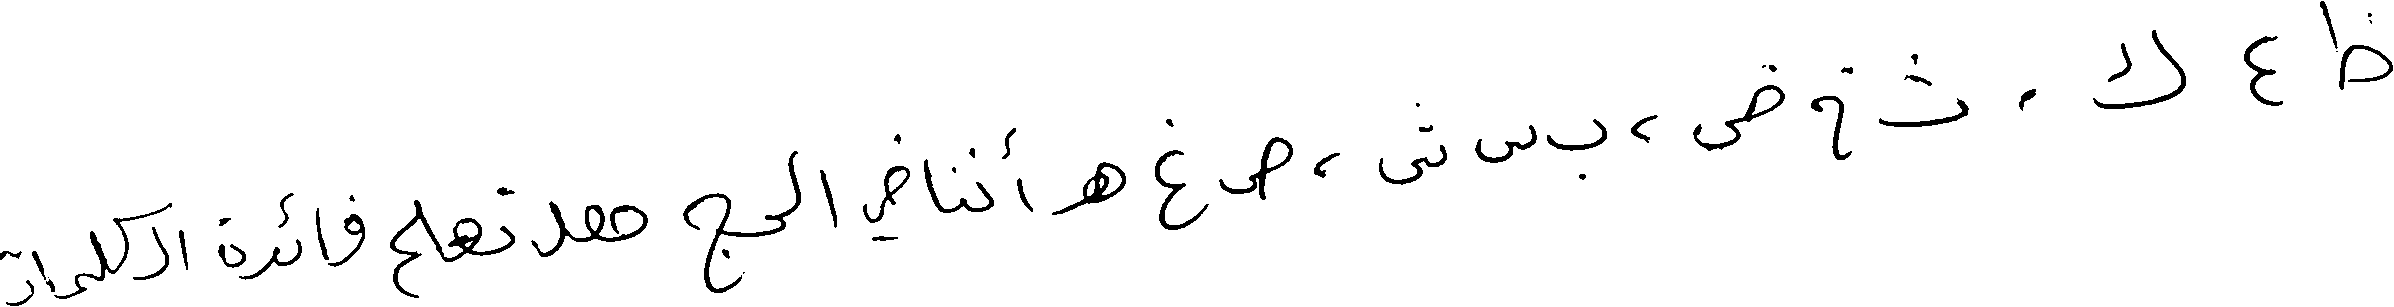 ظ ع ك ، ث خ ض ، ب س ش ، ص غ هـ أننا في الحج هل تعلم فائدة الكلمات